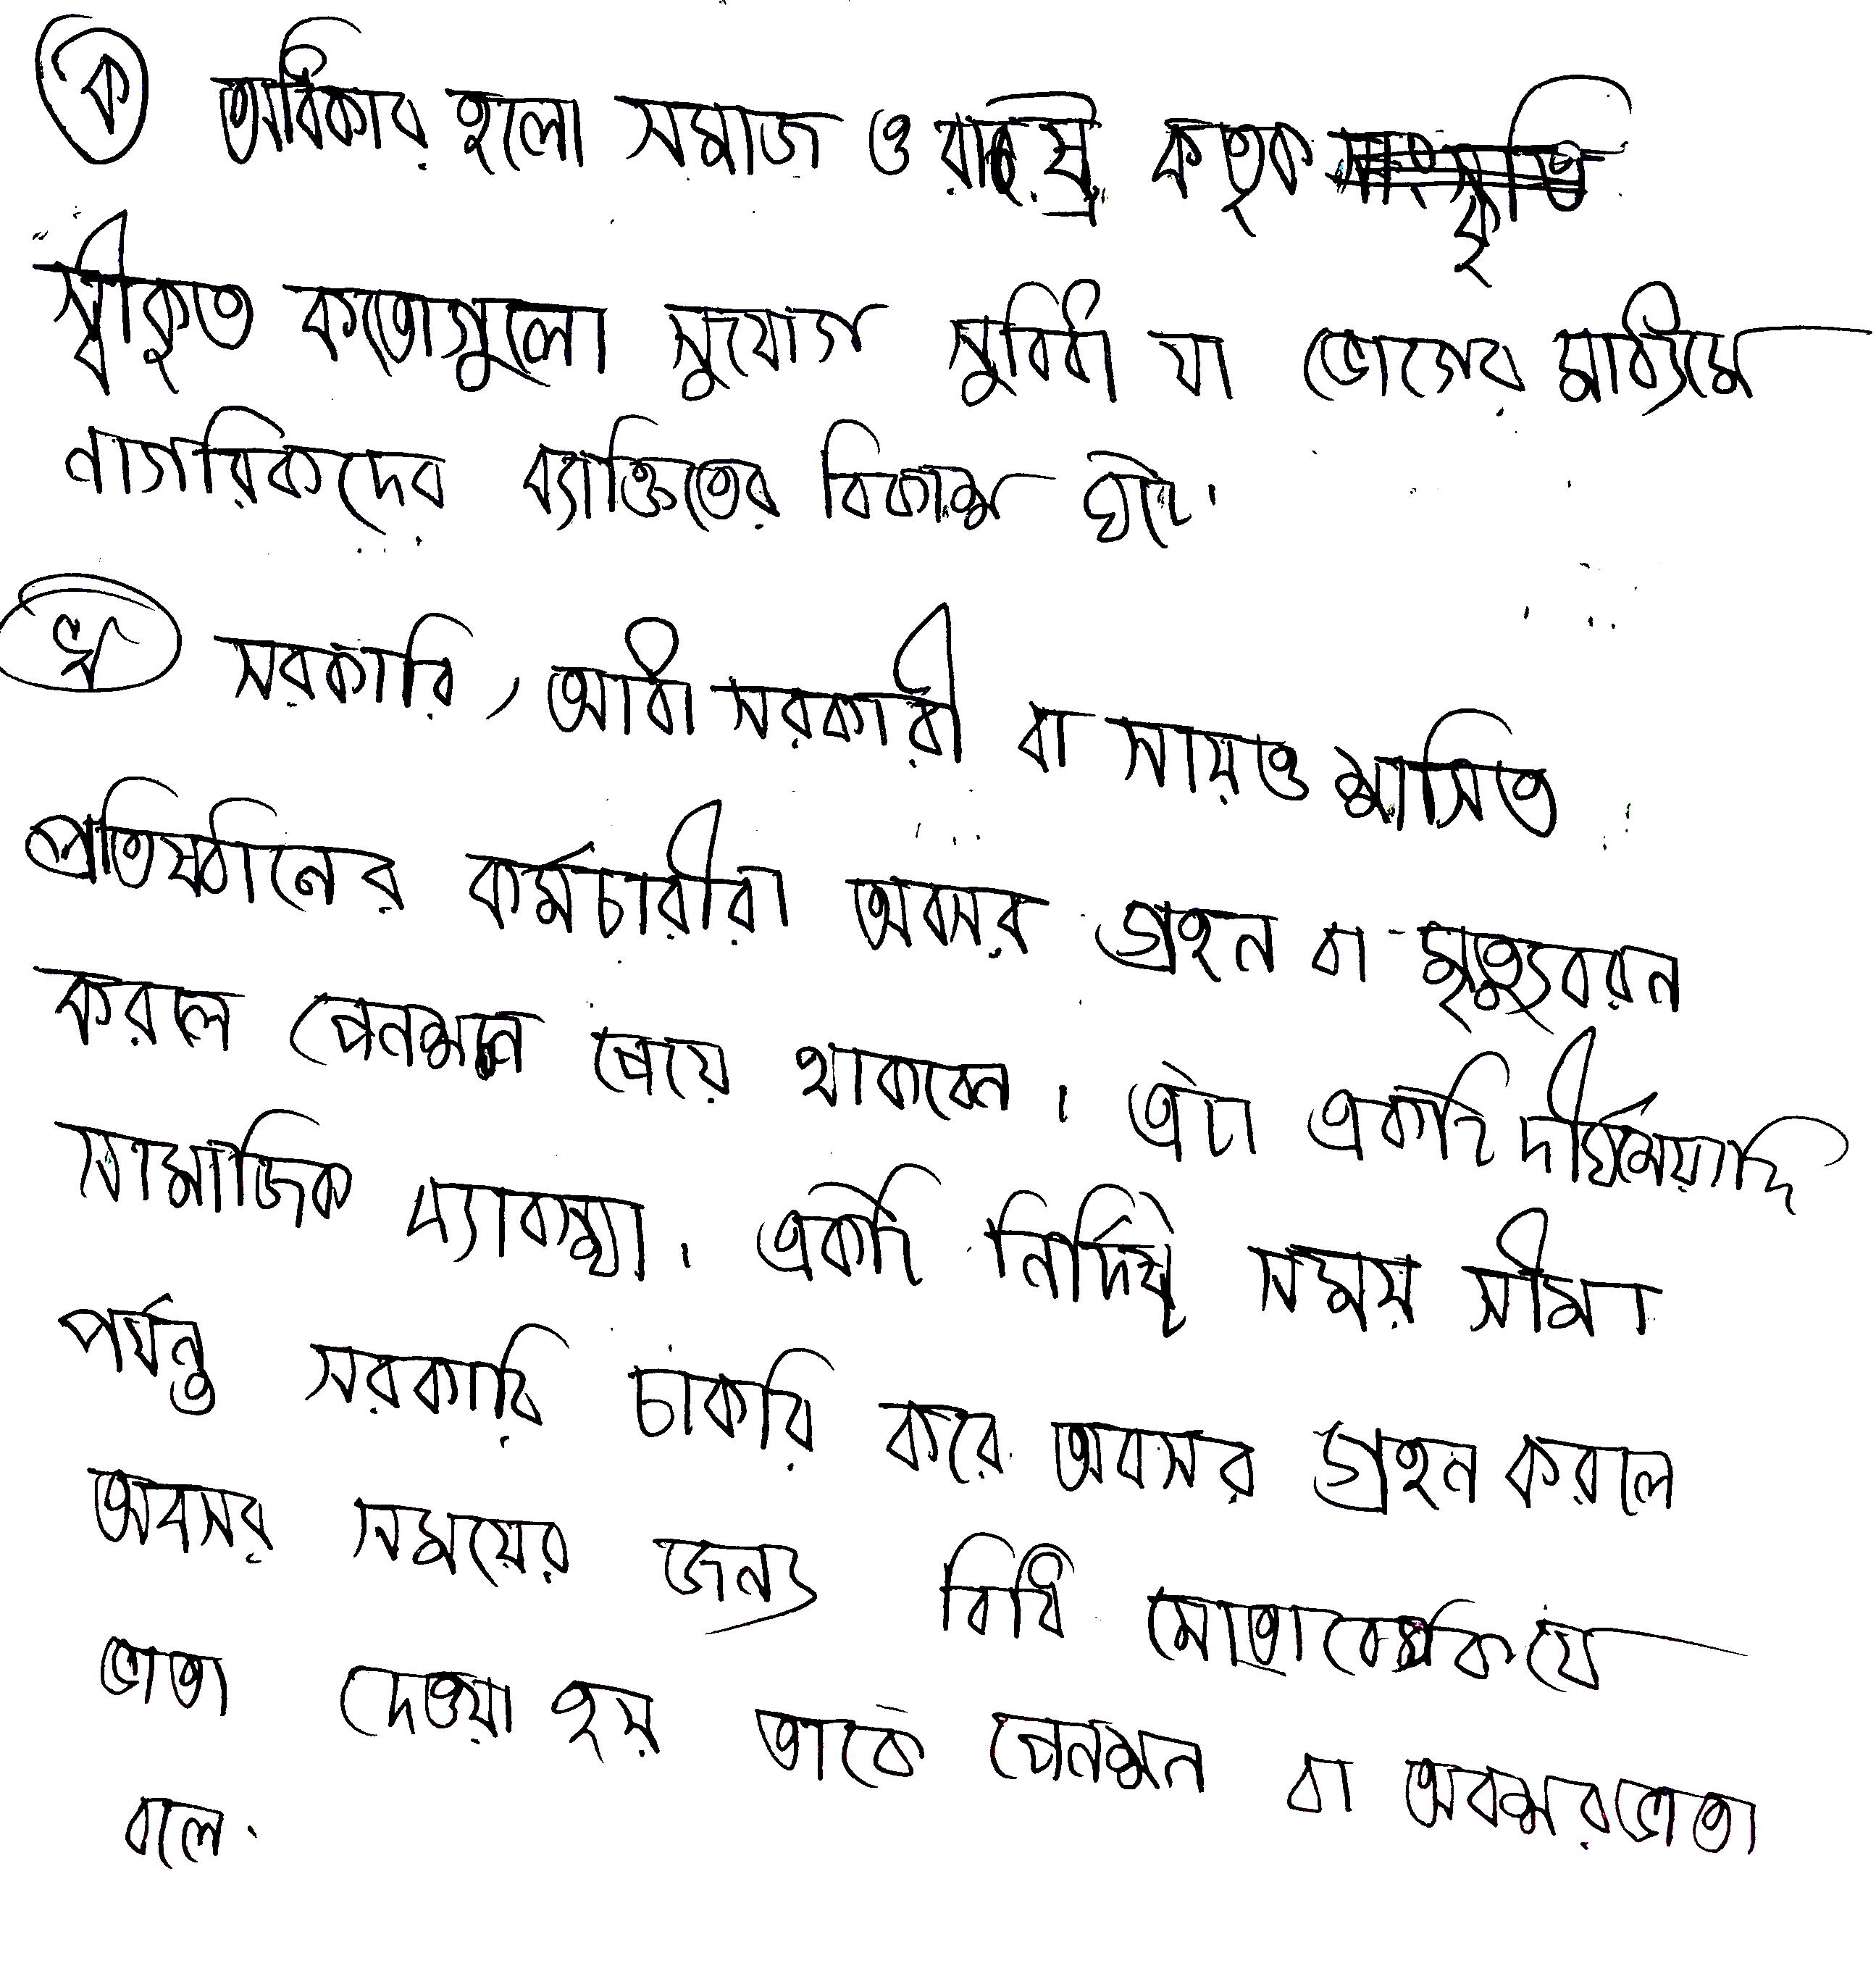 ক অধিকার হলো সমাজ ও রাষ্ট্র কতৃক
স্বীকৃত কতোগুলো সুযোগ সুবিধা যা ভোগের মাধ্যমে
নাগরিকদের ব্যাক্তিত্বের বিকাশ ঘটে।
খ সরকারি, আধা সরকারী বা সায়ত্ত শাসিত
প্রতিষ্ঠানের কর্মচারীরা অবসর গ্রহন বা মৃত্যুবরন
করলে পেনশন পেয়ে থাকবেন। এটা একটি দীর্ঘমেয়াদি
সামাজিক ব্যাবস্থা। একটি নির্দিষ্ট সময় সীমা
পর্যন্ত সরকারি চাকরি করে অবসর গ্রহন করলে
অবসর সময়ের জন্য বিধি মোতাবেক যে
ভাতা দেওয়া হয় তাকে পেনশন বা অবশরভাতা
বলে।